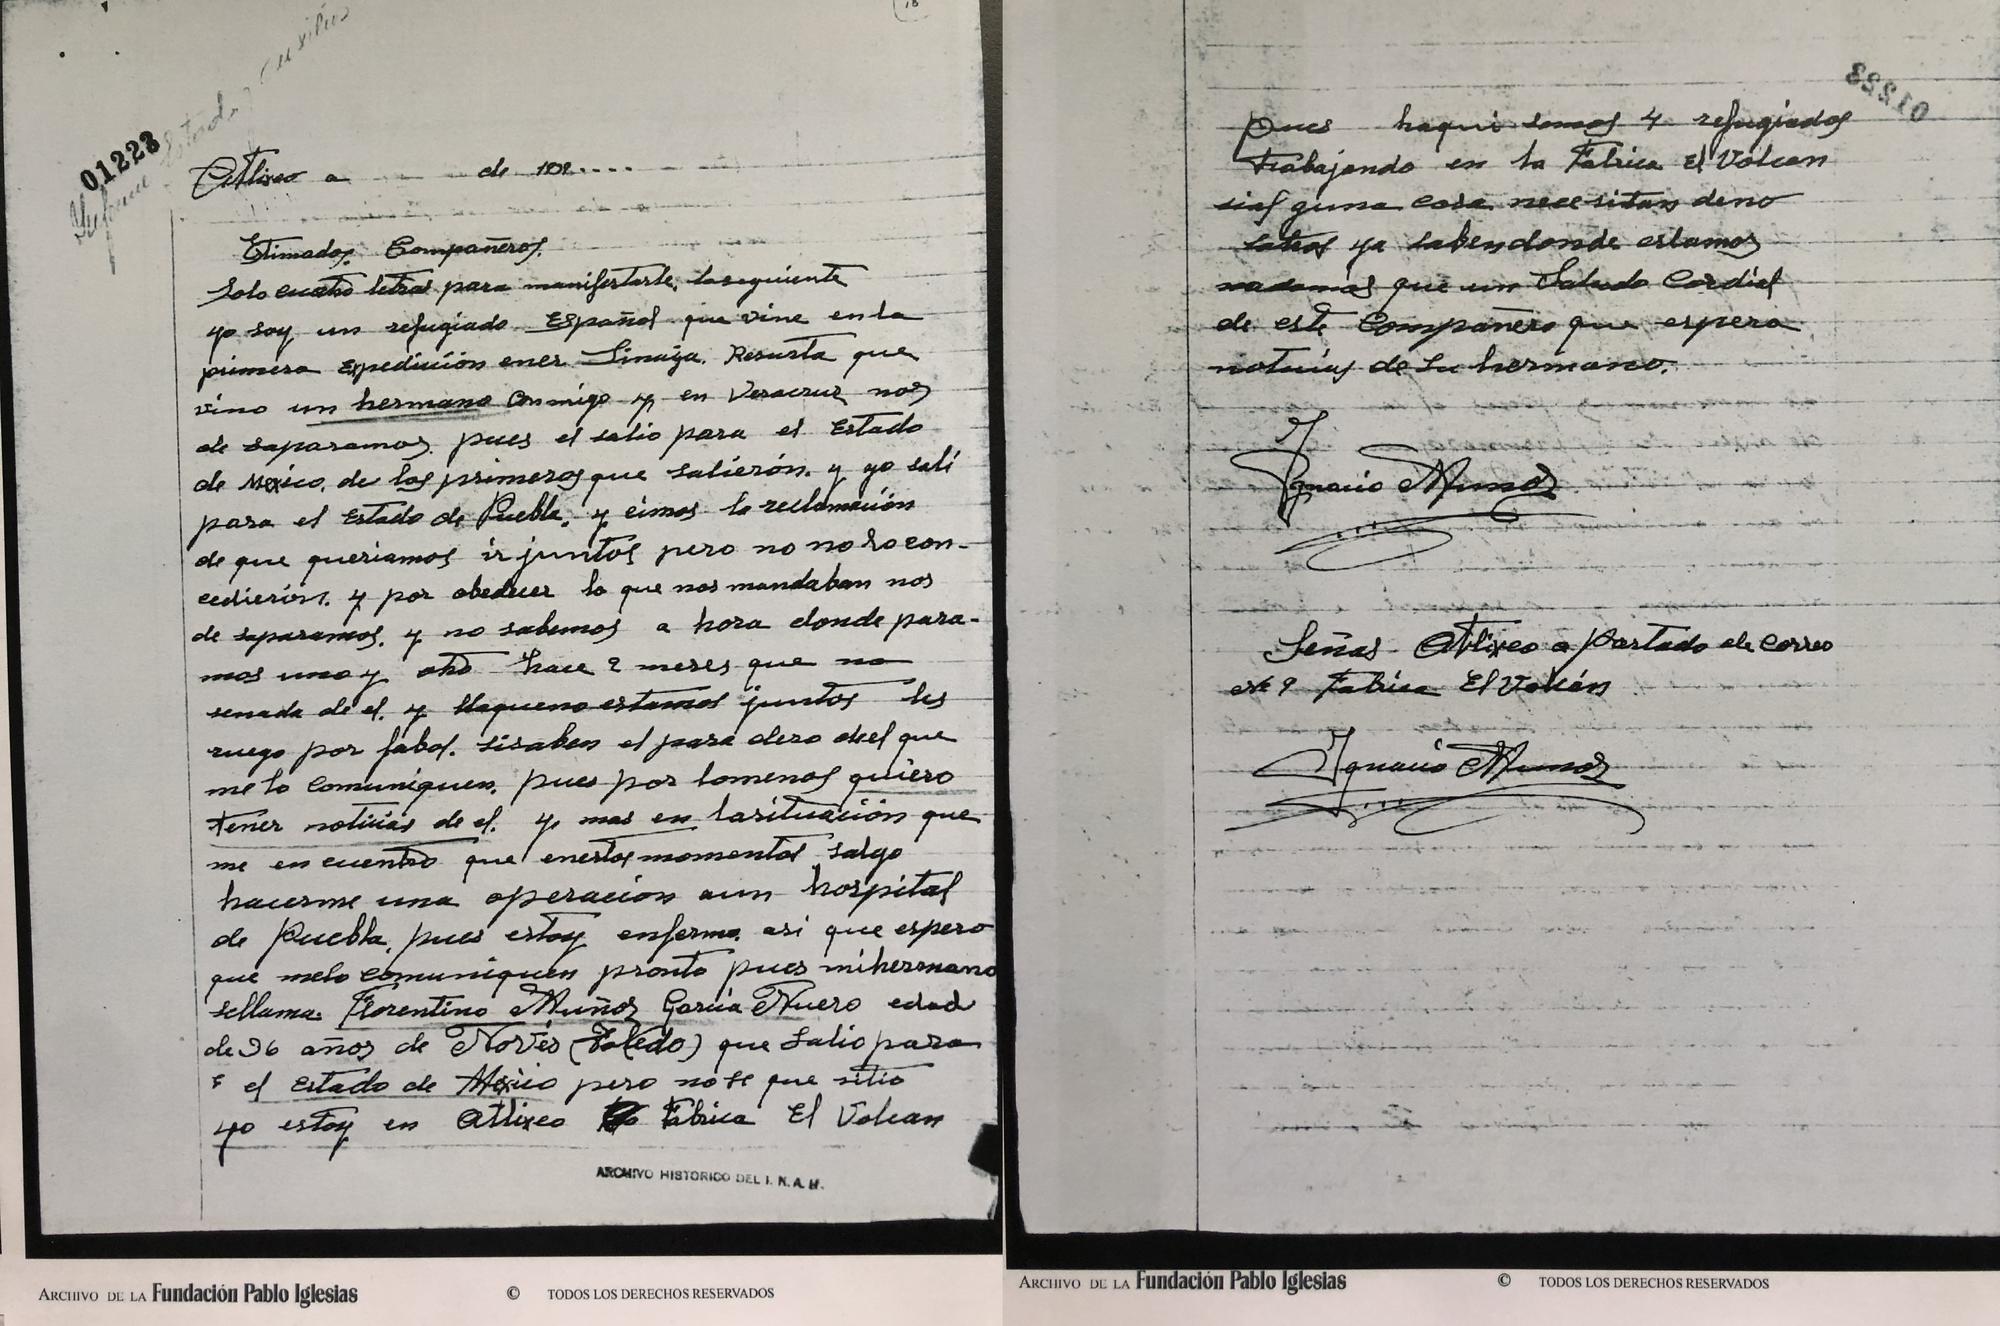 18
01223
Informe Estado y auxilios
Atlixco a de 192....
Estimados Compañeros.
Solo cuatro letras para manifestarle, loseguiente
yo soy un refugiado Español que vine en la
primera Expedición enel Sinaiya. Resurta que
vino un hermano Conmigo y en Veracruz nos
de saparamos. pues el salio para el Estado
de Mexico, de los primeros que salierón. y yo salí
para el Estado de Puebla, y eimos la reclamación
de que queriamos ir juntos pero no no lo con-
cedierón. y por obedecer lo que nos mandaban nos
de saparamos. y no sabemos a hora donde para-
mos uno y otro hace 2 meses que no
senada de el. y llaqueno estamos juntos les
ruego por fabol. sisaben el para dero deel que
me lo comuniquen, pues por lomenos quiero
tener noticias de el. y mas en lasituación que
me en cuentro que enestos momentos salgo
hacerme una operacion aun hospital
de Puebla, pues estoy enfermo. asi que espero
que melo comuniquen pronto pues mihermano
sellama. Florentino Muñoz Garcia Nuero edad
de 36 años de Novés (Toledo) que salio para
el Estado de Mexico pero nose que sitio
yo estoy en Atlixco Fabrica El Volcan
ARCHIVO HISTORICO DEL I. N. A. H.
ARCHIVO DE LA Fundación Pablo Iglesias © TODOS LOS DERECHOS RESERVADOS
01223
pues haqui somos 4 refugiados
trabajando en la Fabrica El Volcan
sial guna cosa necesitan deno
satros ya sabendonde estamos
nadamas que un Saludo Cordial
de este Compañero que espera
noticias de su hermano.
Ignacio Munoz
Señas Atlixco a partado de correo
Nº 9 Fabrica El Volcán
Ignacio Munoz
ARCHIVO DE LA Fundación Pablo Iglesias © TODOS LOS DERECHOS RESERVADOS